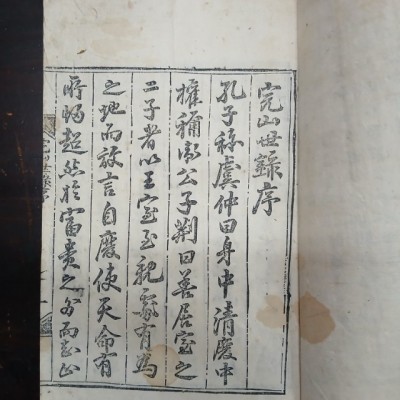 完山世錄序
孔子稱虞仲曰身中清廢中
權稱衛公子荊曰善居室之
二子者以王室至親有為
之地而放言自廢使天命有
所歸超然於富貴之而志止
完山世錄序